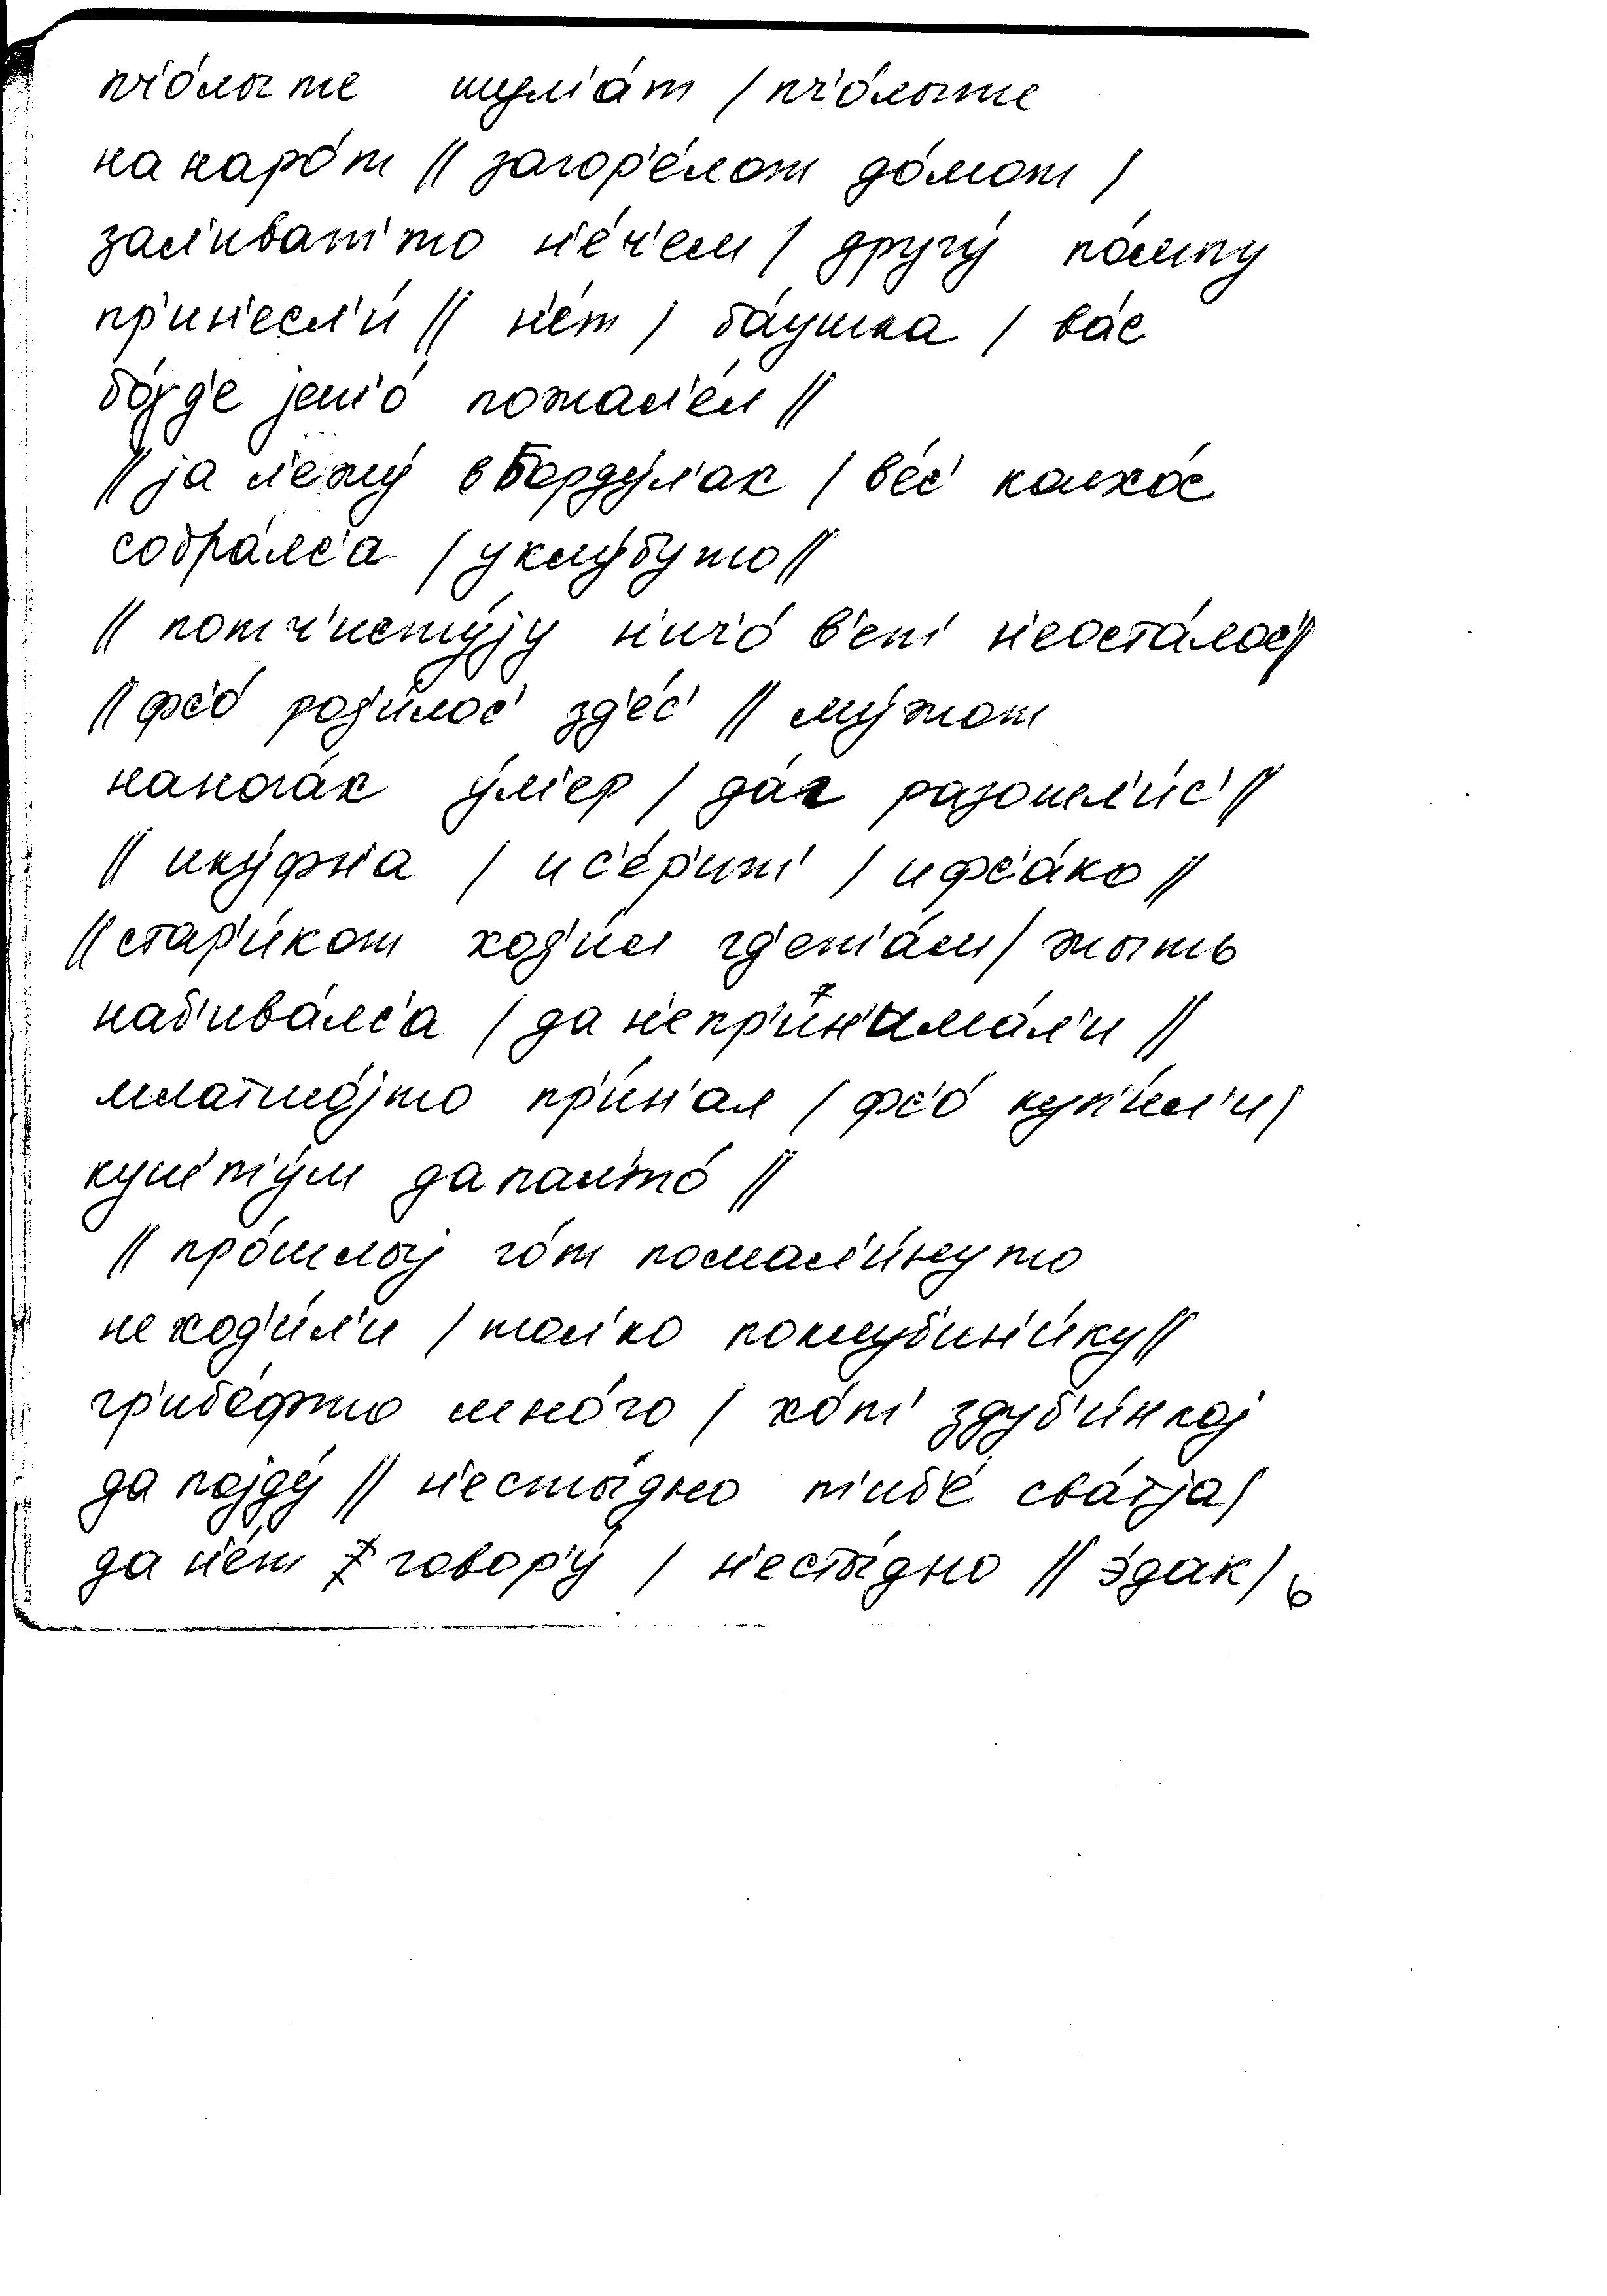 пч'о́лыте шум'а́т / пч'о́лыте
на наро́т // загор'е́лот до́мот /
зал'иват'то н'е́ч'ем / другу́ по́мпу
пр'ин'есл'и́ // н'е́т / ба́ушка / ва́с
бо́γд'е јеш'о́ пожал'е́л //
// ја л'ежу́ в Барду́л'ак / ве́с' калхо́с
собра́лс'а / у клу́бу то //
// пот ч'исту́јy н'ич'о́ в'ет' н'еоста́лос' //
// фс'о́ род'и́лос' зд'е́с' // му́жот
на нога́к у́м'ер / да́к разошл'и́с' //
// и ку́фн'a / и с'е́р'ит' / и фс'а́ко //
// стар'и́кот ход'и́л гд'ет'а́м / жыть
наб'ива́лс'а / да н'епр'ин'има́л'и //
млатшо́јто пр'и́н'ал / фс'о́ куп'и́л'и /
куш'т'у́м да пал'то́ //
// про́шлыј го́т помал'и́нуто
не ход'и́л'и / тол'ко поклуб'ин'и́ку //
гр'ибо́фто мно́го / хо́т' здуб'и́нкој
да појду́ // н'есты́дно т'иб'е́ сва́тја /
да н'е́т говор'у́ / н'есты́дно // э́дак / 6